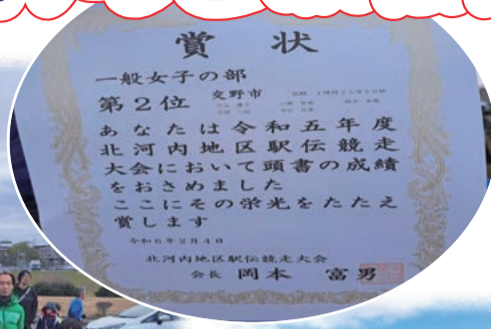 賞状
一般女子の部
第2位 交野市
あなたは令和五年度
北河内地区駅伝競走
大会において頭書の成績
をおさめました
ここにその栄光をたたえ
賞します
令和6年2月4日
北河内地区駅伝競走大会
会長 岡本 富男